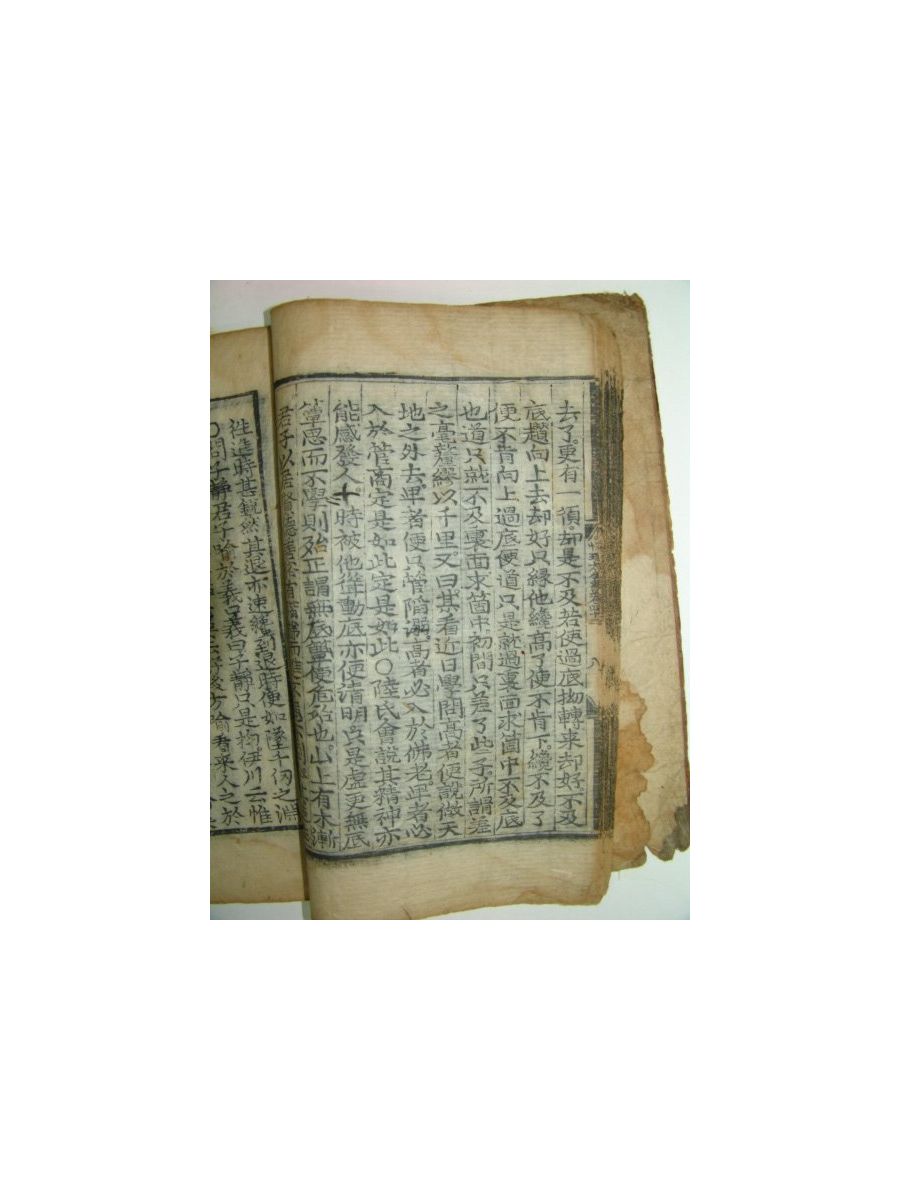 去了更有一項却是不及若使過底拗轉来却好不及
底趲向上去却好只緣他纔高了便不肯下纔不及了
便不肯向上過底便道只是就過裏面求箇中不及底
也道只就不及裏面求箇中初間只差了些子所謂差
之毫釐繆以千里又曰某看近日學問高者便說做天
地之外去卑者便只管陷溺高者必入於佛老卑者必
入於管商定是如此定是如此〇陸氏會說其精神亦
能感發人一時被他聳動底亦便清明只是虛更無底
簟思而不學則殆正謂無底簟便危殆也山上有木漸
君子以居賢德善俗有
進造時甚銳然其退亦速纔到退時便如墜千仞之淵
〇問子静君子喻於義口義曰子静只是拗伊川云惟